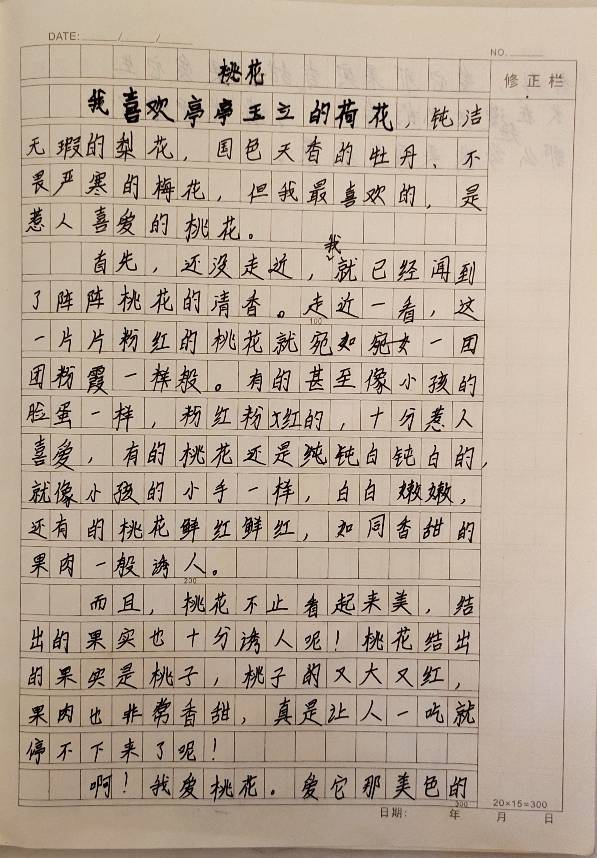 DATE: / /
NO.
桃花
修正栏
我喜欢亭亭玉立的荷花，钝洁
无瑕的梨花，国色天香的牡丹、不
畏严寒的梅花，但我最喜欢的，是
惹人喜爱的桃花。
首先，还没走近，我就已经闻到
了阵阵桃花的清香。走近一看，这
100
一片片粉红的桃花就宛如宛女一团
团粉霞一样般。有的甚至像小孩的
脸蛋一样，粉红粉红的，十分惹人
喜爱，有的桃花还是纯钝白钝白的，
就像小孩的小手一样，白白嫩嫩，
还有的桃花鲜红鲜红，如同香甜的
果肉一般诱人。
200
而且，桃花不止看起来美，结
出的果实也十分诱人呢！桃花结出
的果实是桃子，桃子的又大又红，
果肉也非常香甜，真是让人一吃就
停不下来了呢！
啊！我爱桃花。爱它那美色的
300
20×15=300
日期： 年 月 日